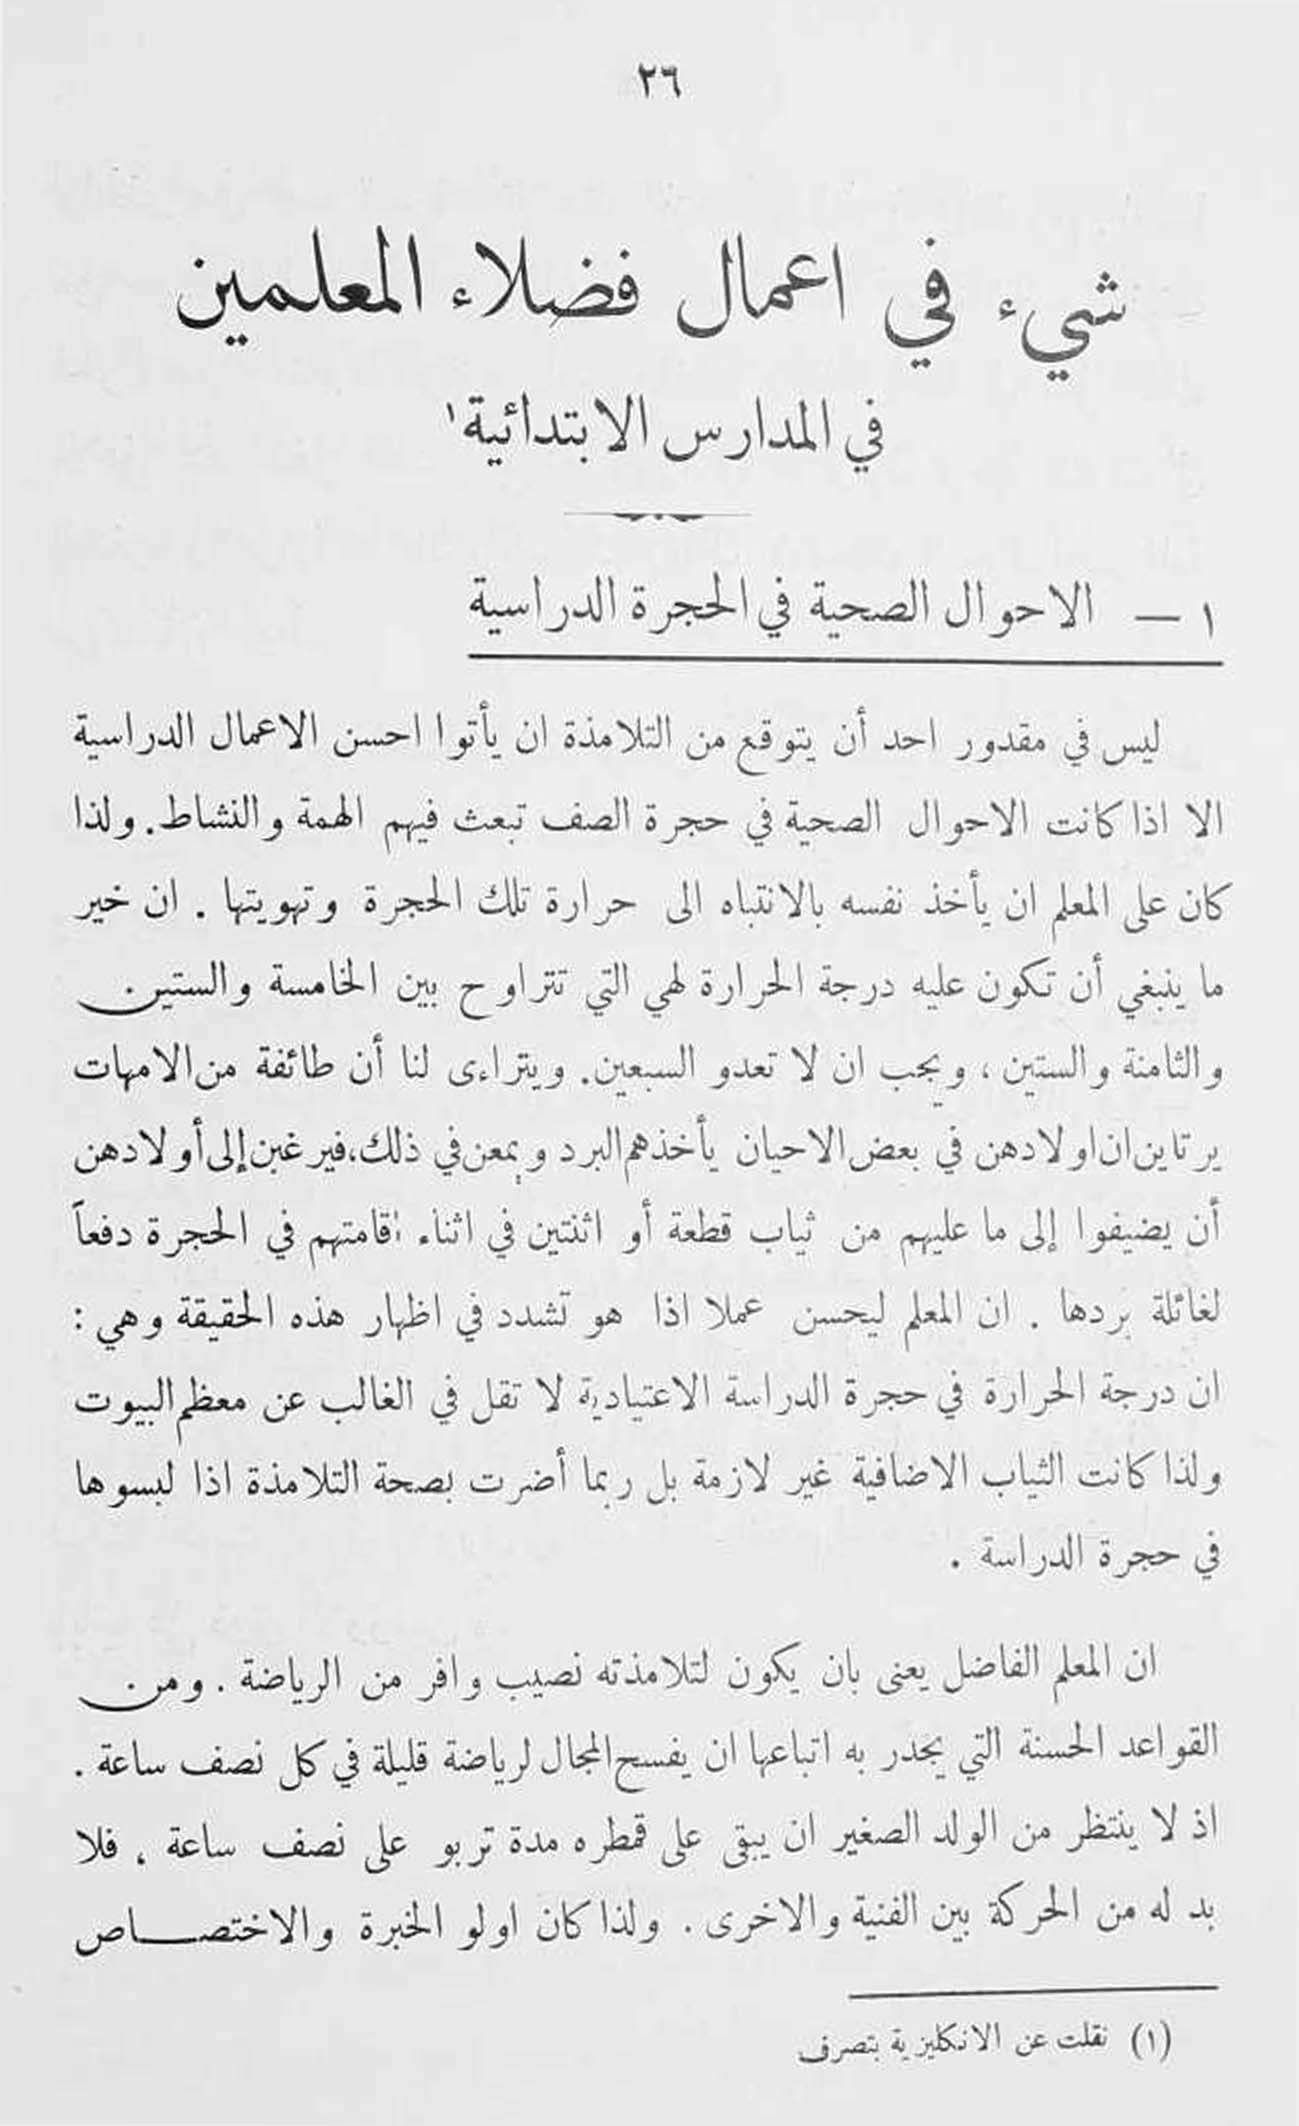 ٢٦
شيء في اعمال فضلاء المعلمين
في المدارس الابتدائية١
١ — الاحوال الصحية في الحجرة الدراسية
ليس في مقدور احد أن يتوقع من التلامذة ان يأتوا احسن الاعمال الدراسية
الا اذا كانت الاحوال الصحية في حجرة الصف تبعث فيهم الهمة والنشاط. ولذا
كان على المعلم ان يأخذ نفسه بالانتباه الى حرارة تلك الحجرة وتهويتها . ان خير
ما ينبغي أن تكون عليه درجة الحرارة لهي التي تتراوح بين الخامسة والستين
والثامنة والستين ، ويجب ان لا تعدو السبعين. ويتراءى لنا أن طائفة من الامهات
يرتاين ان اولادهن في بعض الاحيان يأخذهم البرد ويمعن في ذلك، فيرغبن إلى أولادهن
أن يضيفوا إلى ما عليهم من ثياب قطعة أو اثنتين في اثناء إقامتهم في الحجرة دفعاً
لغائلة بردها . ان المعلم ليحسن عملا اذا هو تشدد في اظهار هذه الحقيقة وهي :
ان درجة الحرارة في حجرة الدراسة الاعتيادية لا تقل في الغالب عن معظم البيوت
ولذا كانت الثياب الاضافية غير لازمة بل ربما أضرت بصحة التلامذة اذا لبسوها
في حجرة الدراسة .
ان المعلم الفاضل يعنى بان يكون لتلامذته نصيب وافر من الرياضة . ومن
القواعد الحسنة التي يجدر به اتباعها ان يفسح المجال لرياضة قليلة في كل نصف ساعة .
اذ لا ينتظر من الولد الصغير ان يبقى على قمطره مدة تربو على نصف ساعة ، فلا
بد له من الحركة بين الفنية والاخرى . ولذا كان اولو الخبرة والاختصاص
(١) نقلت عن الانكليزية بتصرف